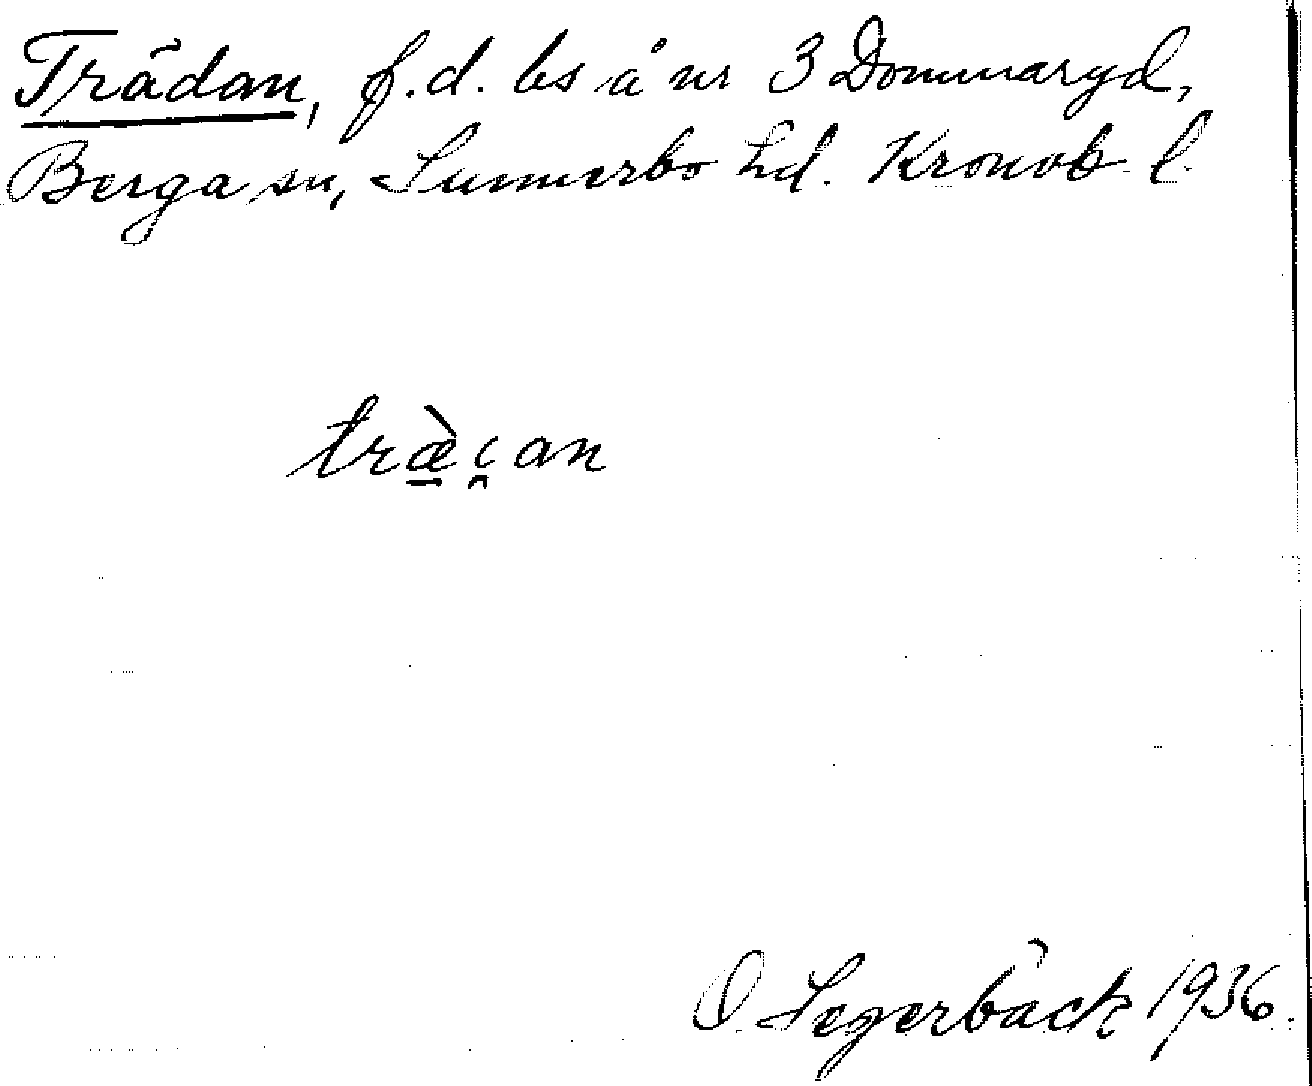 Trädan, f.d. bs å nr 3 Dommaryd,
Berga sn, Sunnerbo hd. Kronob. l.
træ̀i̯an
O. Segerbäck 1936.